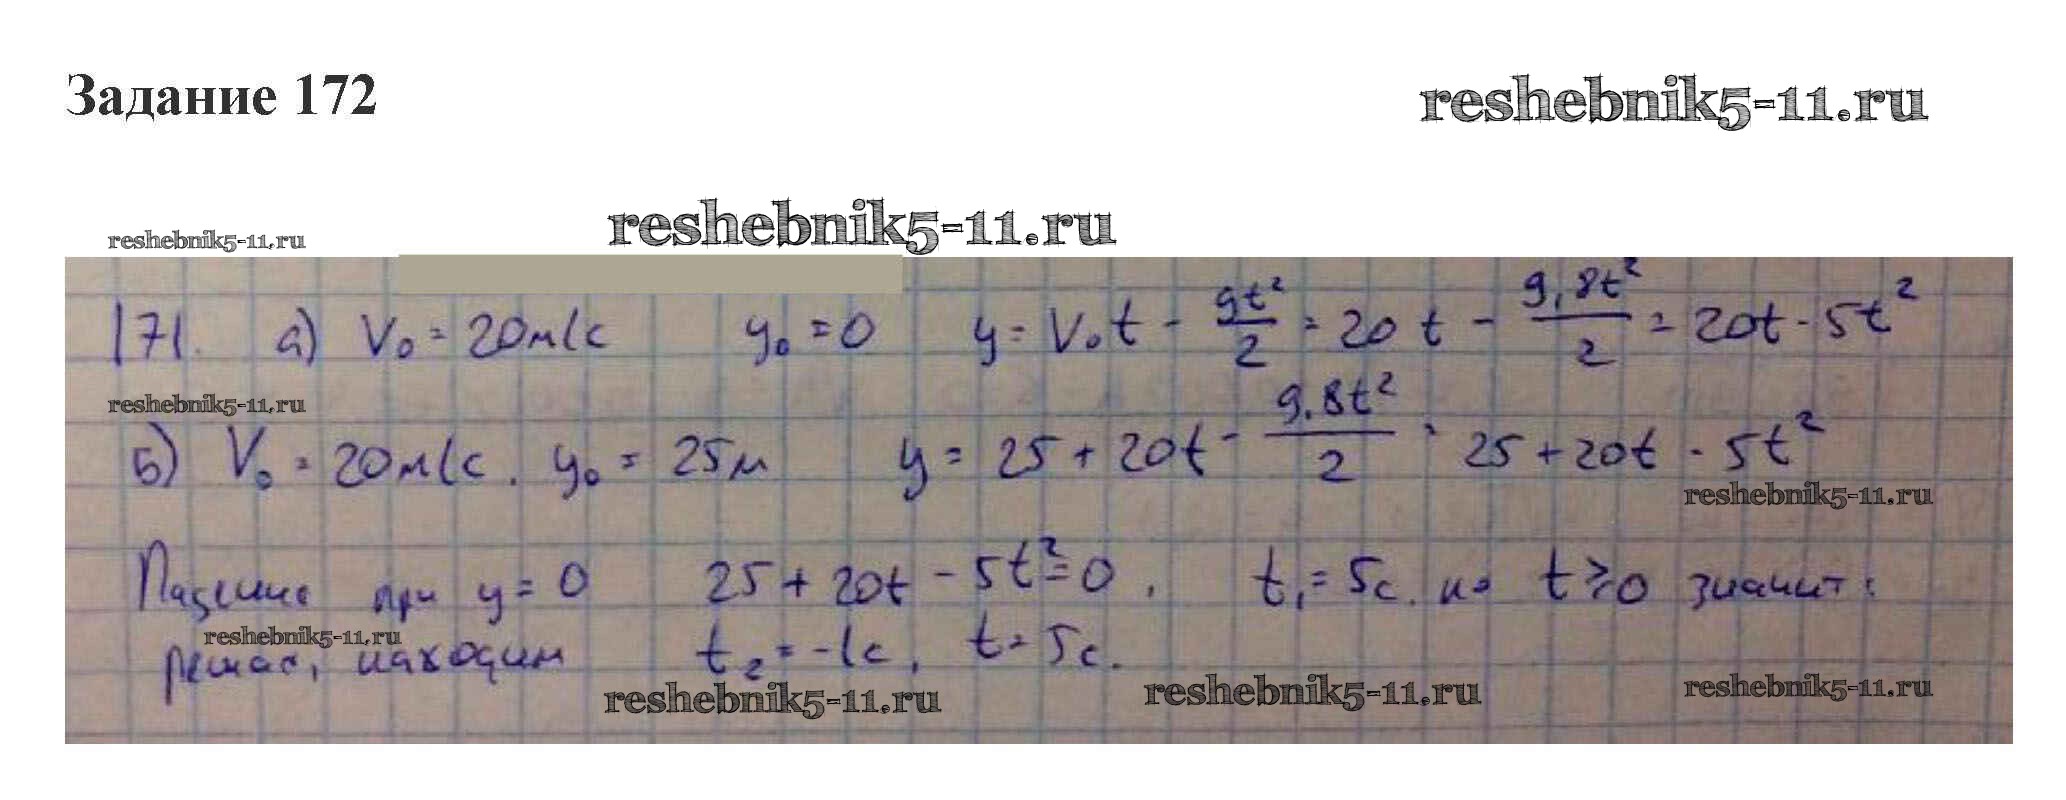 Задание 172
reshebnik5-11.ru
reshebnik5-11.ru
reshebnik5-11.ru
171. а) V₀ = 20м/с y₀ = 0 y = V₀t - gt²/2 = 20t - 9,8t²/2 = 20t - 5t²
reshebnik5-11.ru
б) V₀ = 20м/с. y₀ = 25м y = 25 + 20t - 9.8t²/2 = 25 + 20t - 5t²
reshebnik5-11.ru
Падение при y = 0 25 + 20t - 5t² = 0, t₁ = 5с. но t ≥ 0 значит:
reshebnik5-11.ru
решая, находим t₂ = -1с, t = 5с.
reshebnik5-11.ru
reshebnik5-11.ru
reshebnik5-11.ru